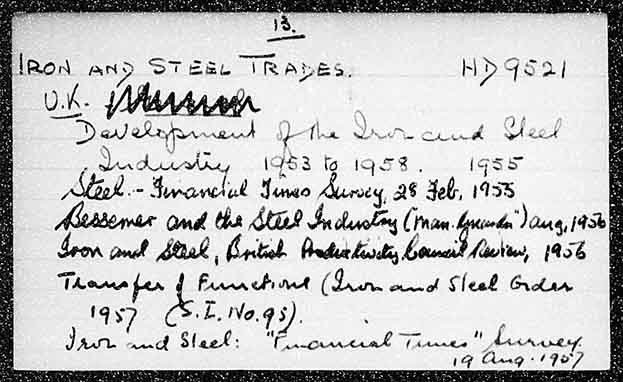 13.
IRON AND STEEL TRADES. HD9521
U.K.
Development of the Iron and Steel
Industry 1953 to 1958. 1955
Steel - Financial Times Survey, 28 Feb, 1955
Bessemer and the Steel Industry ("Man. ") Aug, 1956
Iron and Steel, British Productivity Council Review, 1956
Transfer of Functions (Iron and Steel Order
1957 (S.I. No. 95).
Iron and Steel: "Financial Times" Survey.
19 Aug. 1957